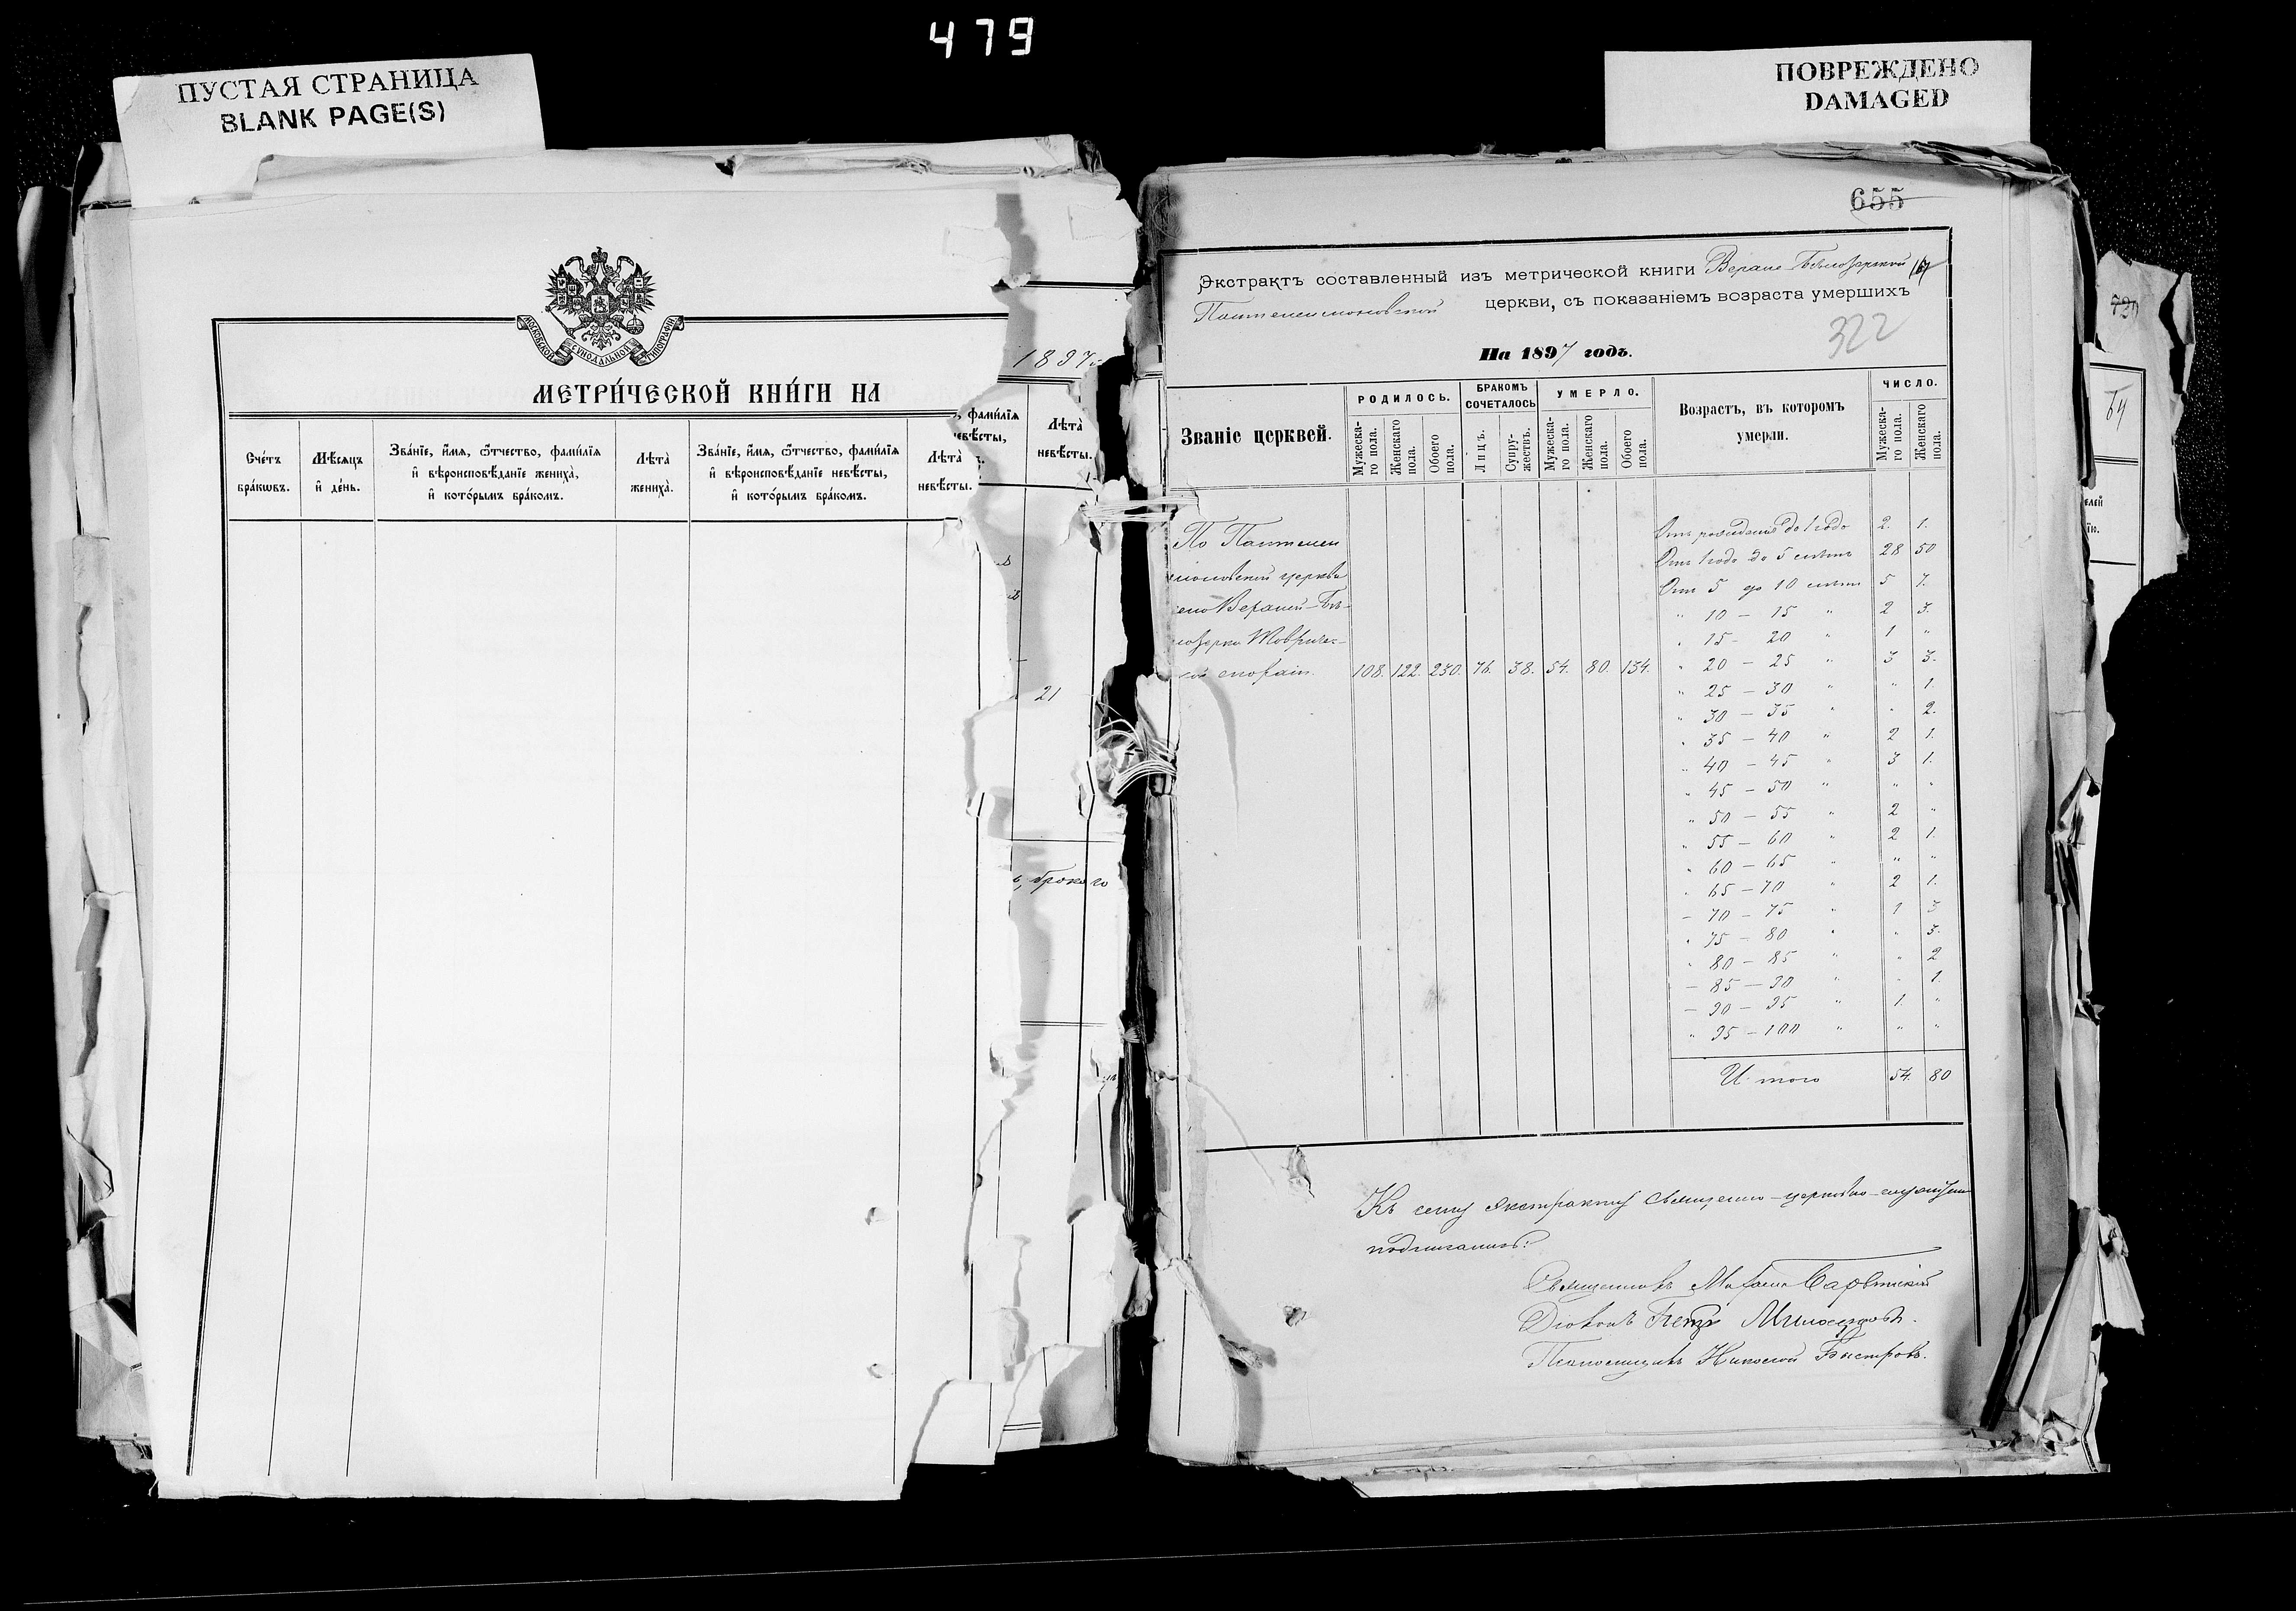 479
ПУСТАЯ СТРАНИЦА
BLANK PAGE(S)
МОСКОВСКОЙ СѴНОДАЛЬНОЙ ТИПОГРАФІИ
1897
МЕТРИ́ЧЕСКОЙ КНИ́ГИ НА
Сче́тъ бра́кѡвъ.
Мѣ́сяцъ и҆ де́нь.
Зва́нїе, и҆́мя, ѻ҆́тчество, фами́лїя и҆ вѣроисповѣ́данїе жениха̀, и҆ кото́рымъ бра́комъ.
Лѣ́та жениха̀.
Зва́нїе, и҆́мя, ѻ҆́тчество, фами́лїя и҆ вѣроисповѣ́данїе невѣ́сты, и҆ кото́рымъ бра́комъ.
Лѣ́та невѣ́сты.
фами́лїя
Лѣ́та невѣ́сты.
21
ПОВРЕЖДЕНО
DAMAGED
655
Экстрактъ составленный изъ метрической книги Верхне-Бѣлозерской
Пантелеимоновской церкви, съ показаніемъ возраста умершихъ
322
На 1897 годъ.
Званіе церквей.
РОДИЛОСЬ.
Мужеска-го пола.
Женскаго пола.
Обоего пола.
БРАКОМЪ СОЧЕТАЛОСЬ
Лицъ.
Супру-жествъ.
УМЕРЛО.
Мужеска-го пола.
Женскаго пола.
Обоего пола.
Возрастъ, въ которомъ умерли.
ЧИСЛО.
Мужеска-го пола.
Женскаго пола.
По Пантелеи
моновской церкви
село Верхней-Бѣ-
лозерки Тавричес-
кой епархіи. 108. 122. 230. 76. 38. 54. 80. 134.
Отъ рожденія до 1 года 2. 1.
Отъ 1 года до 5 лѣтъ 28 50
Отъ 5 до 10 лѣтъ 5 7.
" 10 — 15 " 2 3.
" 15 — 20 " 1 "
" 20 — 25 " 3 3.
" 25 — 30 " " 1.
" 30 — 35 " " 2.
" 35 — 40 " 2 1.
" 40 — 45 " 3 1.
" 45 — 50 " " "
" 50 — 55 " 2 "
" 55 — 60 " 2 1.
" 60 — 65 " " "
" 65 — 70 " 2 1.
— 70 — 75 " 1 3
" 75 — 80 " " 3.
" 80 — 85 " " 2
— 85 — 90 " " 1.
— 90 — 95 " 1. "
" 95 — 100 " " "
Итого 54. 80
Къ сему экстракту священно-церковно-служители
подписались:
Священникъ
Діаконъ Петръ
Псаломщикъ Николай Быстровъ.
729
64